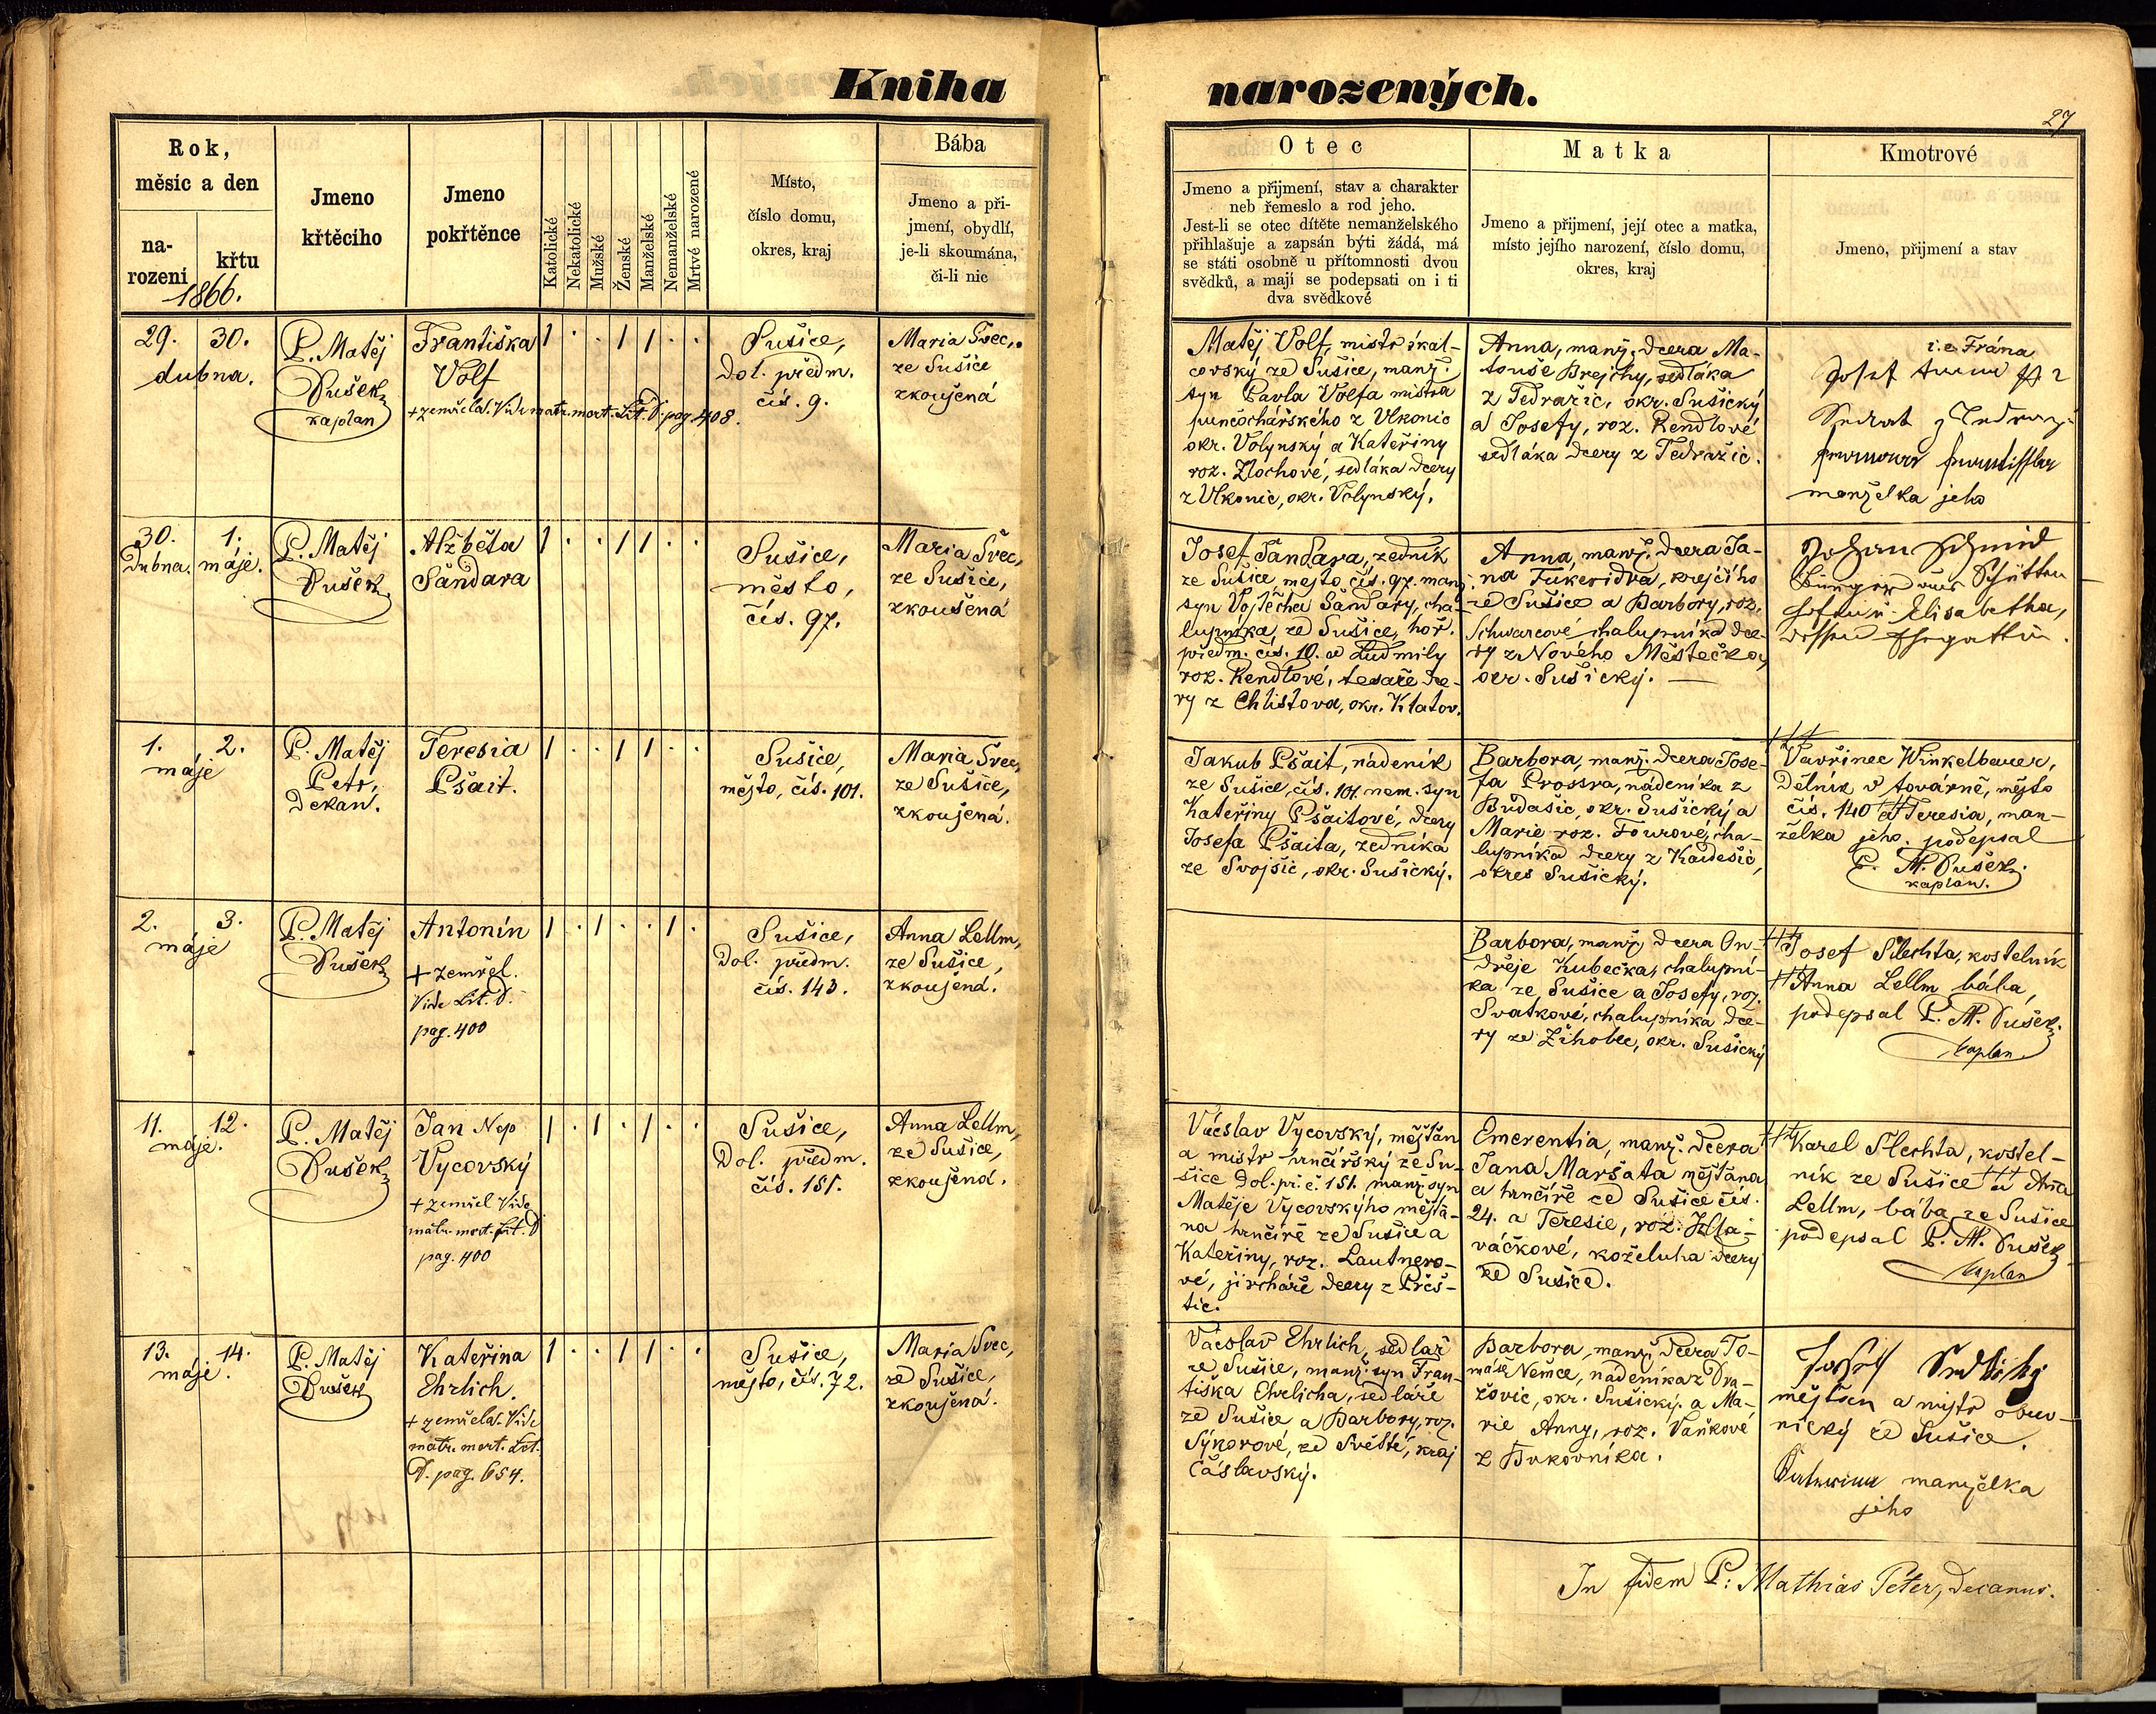 Kniha narozených.
27
Rok,
měsíc a den
na-
rození
křtu
1866.
Jmeno
křtěcího
Jmeno
pokřtěnce
Katolické
Nekatolické
Mužské
Ženské
Manželské
Nemanželské
Mrtvé narozené
Místo,
číslo domu,
okres, kraj
Bába
Jmeno a při-
jmení, obydlí,
je-li skoumána,
či-li nic
Otec
Jmeno a přijmení, stav a charakter
neb řemeslo a rod jeho.
Jest-li se otec dítěte nemanželského
přihlašuje a zapsán býti žádá, má
se státi osobně u přítomnosti dvou
svědků, a mají se podepsati on i ti
dva svědkové
Matka
Jmeno a přijmení, její otec a matka,
místo jejího narození, číslo domu,
okres, kraj
Kmotrové
Jmeno, přijmení a stav
29. 30.
dubna.
P. Matěj
Dušek
kaplan
Františka
Volf
+ zemřela. Vide matr. mort. Lit. D. pag. 408.
1 . . 1 1 . .
Sušice,
Dol. předm.
čís. 9.
Maria Švec,
ze Sušice
zkoušená
Matěj Volf, mistr škal-
covský ze Sušice, manž.
syn Pavla Volfa mistra
punčochářského z Vlkonic
okr. Volynský a Kateřiny
roz. Zlochové, sedláka dcery
z Vlkonic, okr. Volynský.
Anna, manž. dcera Ma-
touše Brejchy, sedláka
z Tedražic, okr. Sušický
a Josefy, roz. Rendlové
sedláka dcery z Tedražic.
i. e. Frána
Josef
manželka jeho
30. 1.
Dubna. máje.
P. Matěj
Dušek
Alžběta
Šandara
1 . . 1 1 . .
Sušice,
město,
čís. 97.
Maria Švec,
ze Sušice,
zkoušená
Josef Šandara, zedník
ze Sušice, město, čís. 97. manž.
syn Vojtěcha Šandary, cha-
lupníka, ze Sušice, hoř.
předm. čís. 10. a Ludmily
roz. Rendlové, tesaře dce-
ry z Chlistova, okr. Klatov.
Anna, manž. dcera Ja-
na Fukeridra, krejčího
ze Sušice a Barbory, roz.
Schwarcové chalupníka dce-
ry z Nového Městečka,
okr. Sušický.
Johan Schmid
Elisabetha,
1. 2.
máje
P. Matěj
Petr,
Děkan.
Teresia
Pšait.
1 . . 1 1 . .
Sušice,
město, čís. 101.
Maria Švec,
ze Sušice,
zkoušená.
Jakub Pšait, nádeník
ze Sušice, čís. 101. nem. syn
Kateřiny Pšaitové, dcery
Josefa Pšaita, zedníka
ze Svojšic, okr. Sušický.
Barbora, manž. dcera Jose-
fa Prossra, nádeníka z
Budašic, okr. Sušický a
Marie roz. Fourové, cha-
lupníka dcery z Kadešic,
okres Sušický.
+++
Vavřinec Winkelbauer,
Dělník v továrně, město
čís. 140 a +++ Teresia, man-
želka jeho. podepsal
P. M. Dušek.
kaplan.
2. 3.
máje
P. Matěj
Dušek
Antonín
+ zemřel.
Vide Lit. D.
pag. 400
1 . 1 . . 1 .
Sušice,
Dol. předm.
čís. 143.
Anna Lellm,
ze Sušice,
zkoušená.
Barbora, manž. dcera On-
dřeje Kubečka, chalupní-
ka ze Sušice a Josefy, roz.
Svatkové, chalupníka dce-
ry ze Žihobce, okr. Sušický
+++ Josef Šlechta, kostelník
+++ Anna Lellm bába,
podepsal P. M. Dušek.
kaplan.
11. 12.
máje.
P. Matěj
Dušek
Jan Nep
Vycovský
+ zemřel Vide
matr. mort. Lit. D
pag. 400
1 . 1 . 1 . .
Sušice,
Dol. předm.
čís. 151.
Anna Lellm,
ze Sušice,
zkoušená.
Václav Vycovský, měšťan
a mistr hrnčířský ze Su-
šice Dol. př. č. 151. manž. syn
Matěje Vycovskýho měšťa-
na hrnčíře ze Sušice a
Kateřiny, roz. Lautnero-
vé, jircháře dcery z Přeš-
tic.
Emerentia, manž. dcera
Jana Maršata měšťana
a hrnčíře ze Sušice čís.
24. a Teresie, roz. Hla-
váčkové, koželuha dcery
ze Sušice.
+++ Karel Šlechta, kostel-
ník ze Sušice +++ a Anna
Lellm, bába ze Sušice
podepsal P. M. Dušek
kaplan
13. 14.
máje.
P. Matěj
Dušek
Kateřina
Ehrlich.
+ zemřela. Vide
matr. mort. Lit.
D. pag. 654.
1 . . 1 1 . .
Sušice,
město, čís. 72.
Maria Švec,
ze Sušice,
zkoušená.
Václav Ehrlich, sedlař
ze Sušice, manž. syn Fran-
tiška Ehrlicha, sedláře
ze Sušice a Barbory, roz.
Sýkorové, ze Světlé, kraj
Čáslavský.
Barbora, manž. dcera To-
máše Němce, nádeníka z Dra-
žovic, okr. Sušický. a Ma-
rie Anny, roz. Vaňkové
z Bukovníka.
Josef Sedlický
měšťan a mistr obuv-
nický ze Sušice.
Katarina manželka
jeho
In fidem P: Mathias Peter, decanus.